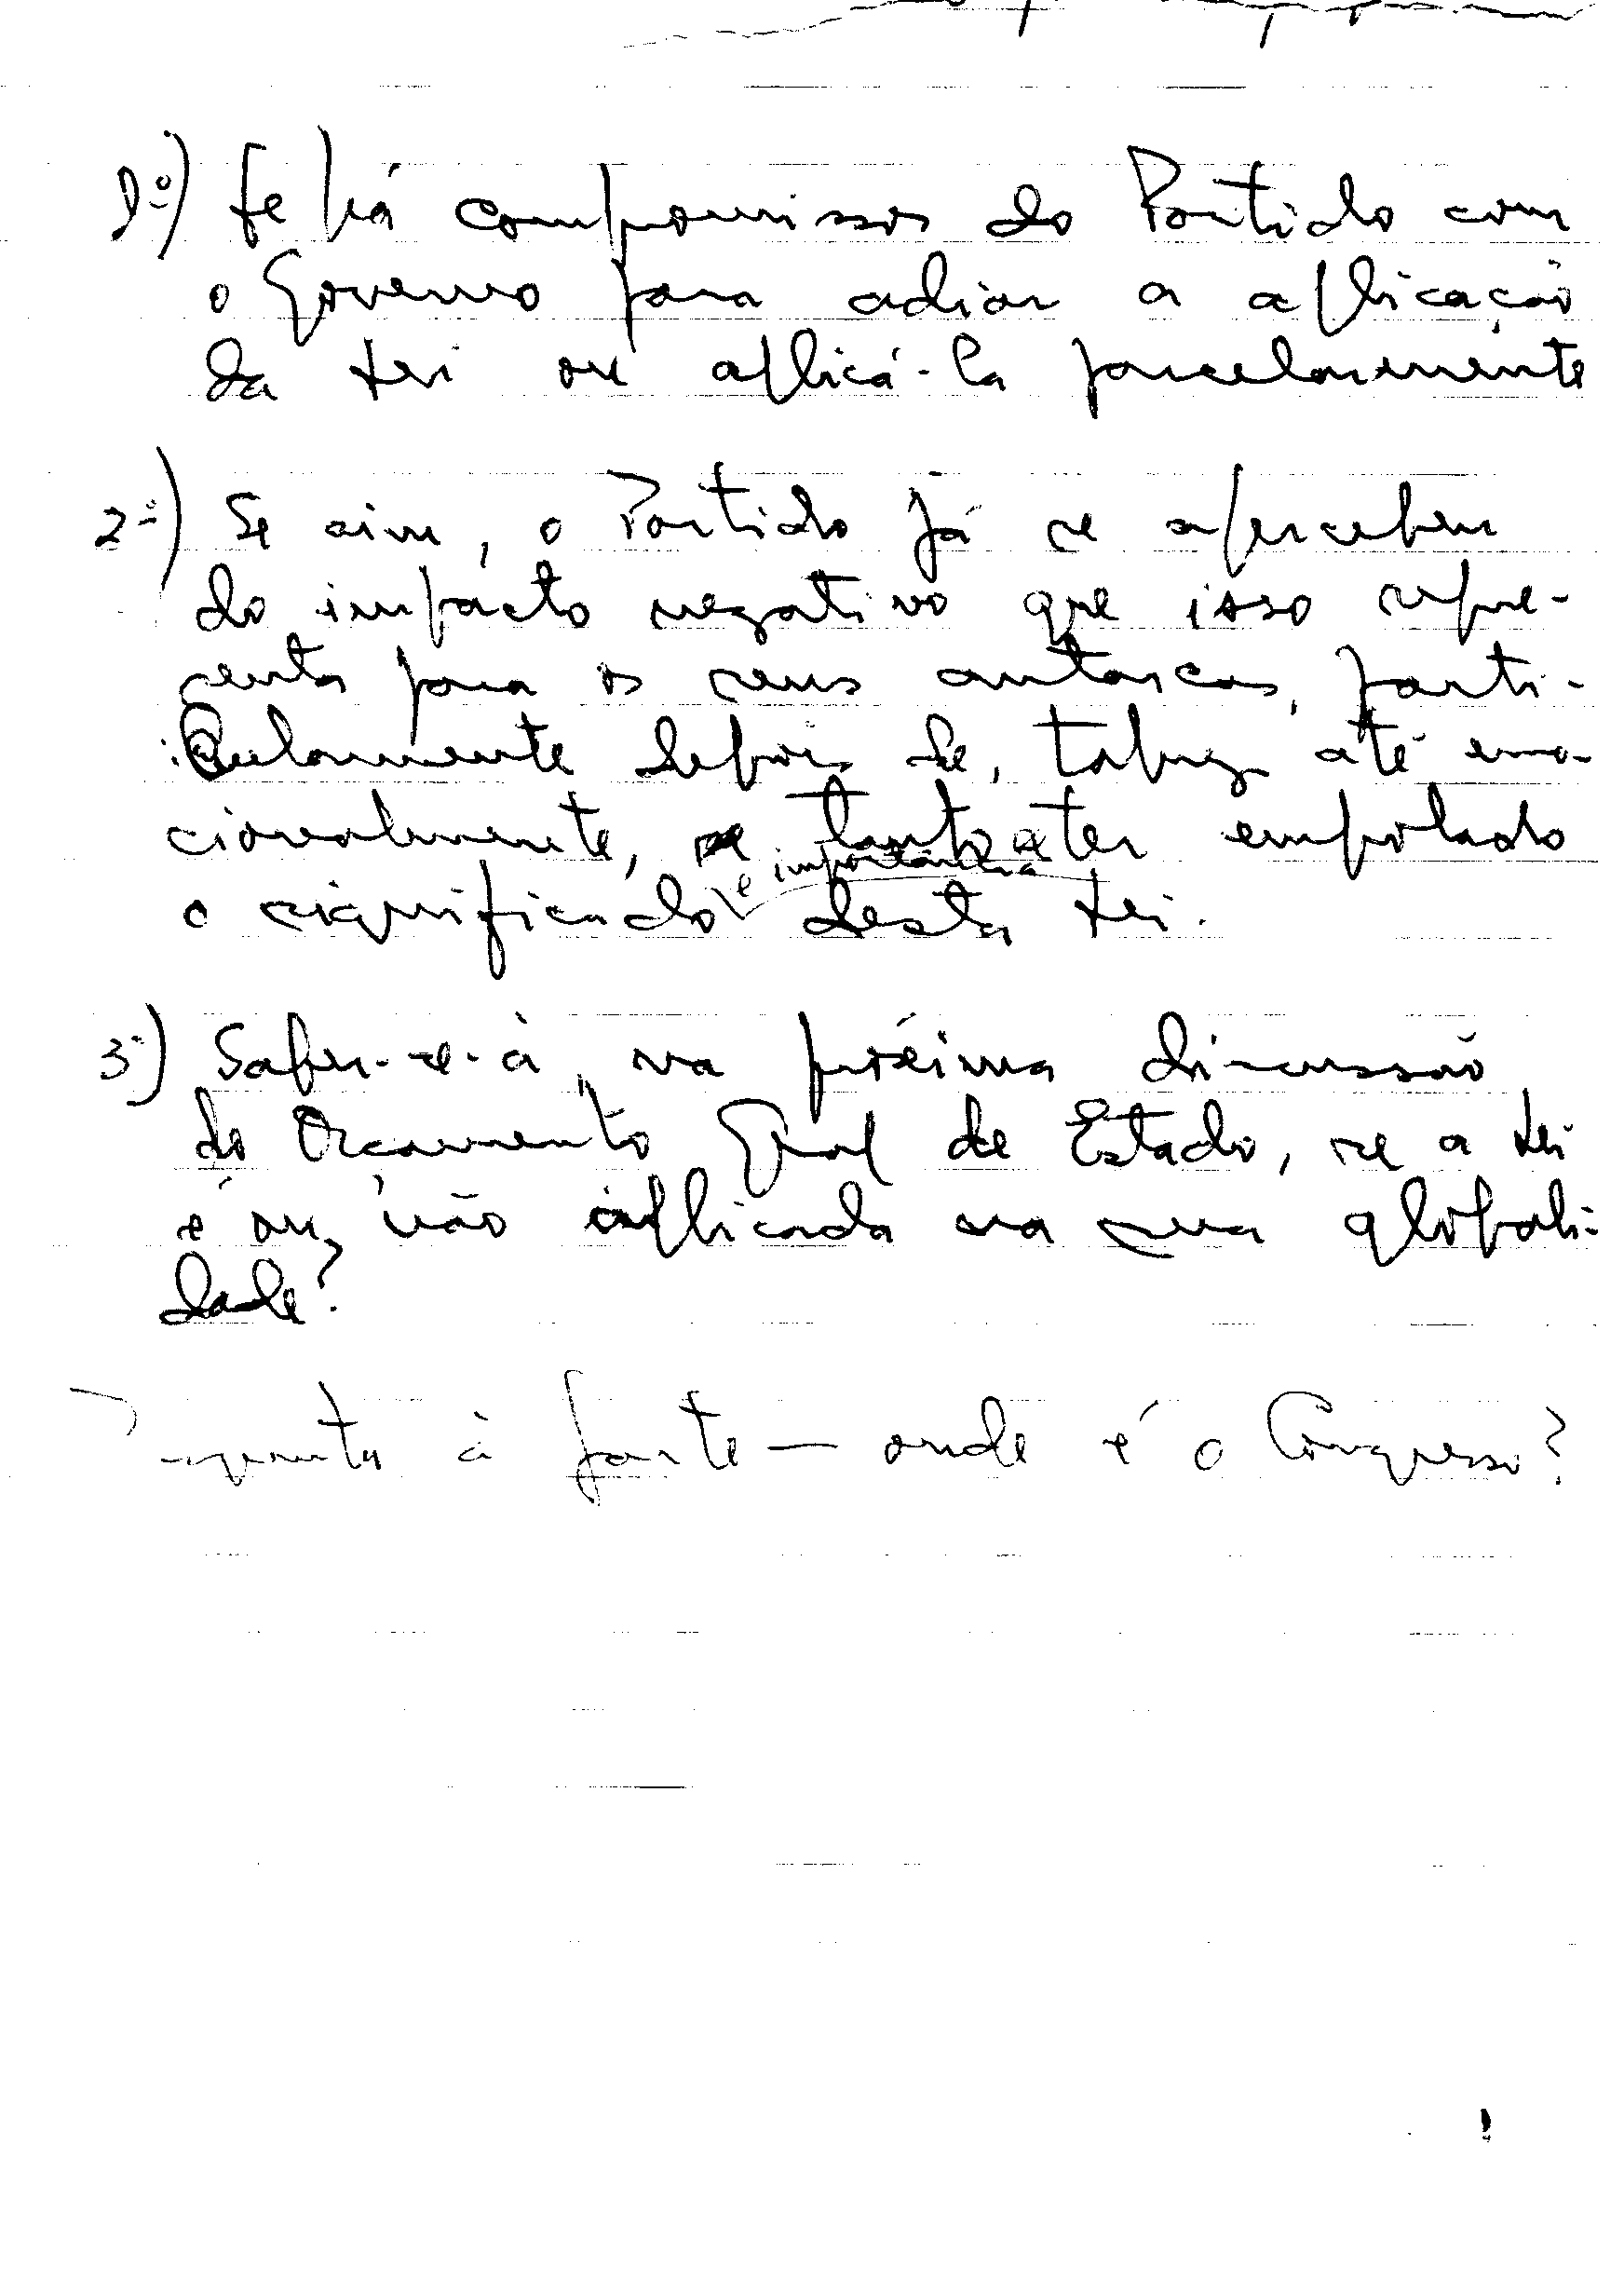 1º) Se há compromissos do Partido com
o Governo para adiar a aplicação
da Lei ou aplicá-la parcelarmente
2º) Se sim, o Partido já se apercebeu
do impacto negativo que isso repre-
senta para os seus autarcas, parti-
cularmente depois de, talvez até emo-
cionalmente, tanto se ter empolado
o significado e importância desta Lei.
3º) Saber-se-à, na próxima discussão
do Orçamento Geral de Estado, se a Lei
é ou não aplicada na sua globali-
dade?
Pergunta à parte — onde é o Congresso?